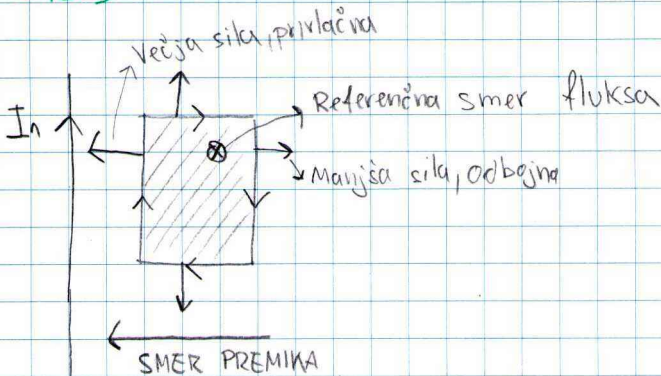 Večja sila, privlačna
I₁
Referenčna smer fluksa
Manjša sila, odbojna
SMER PREMIKA